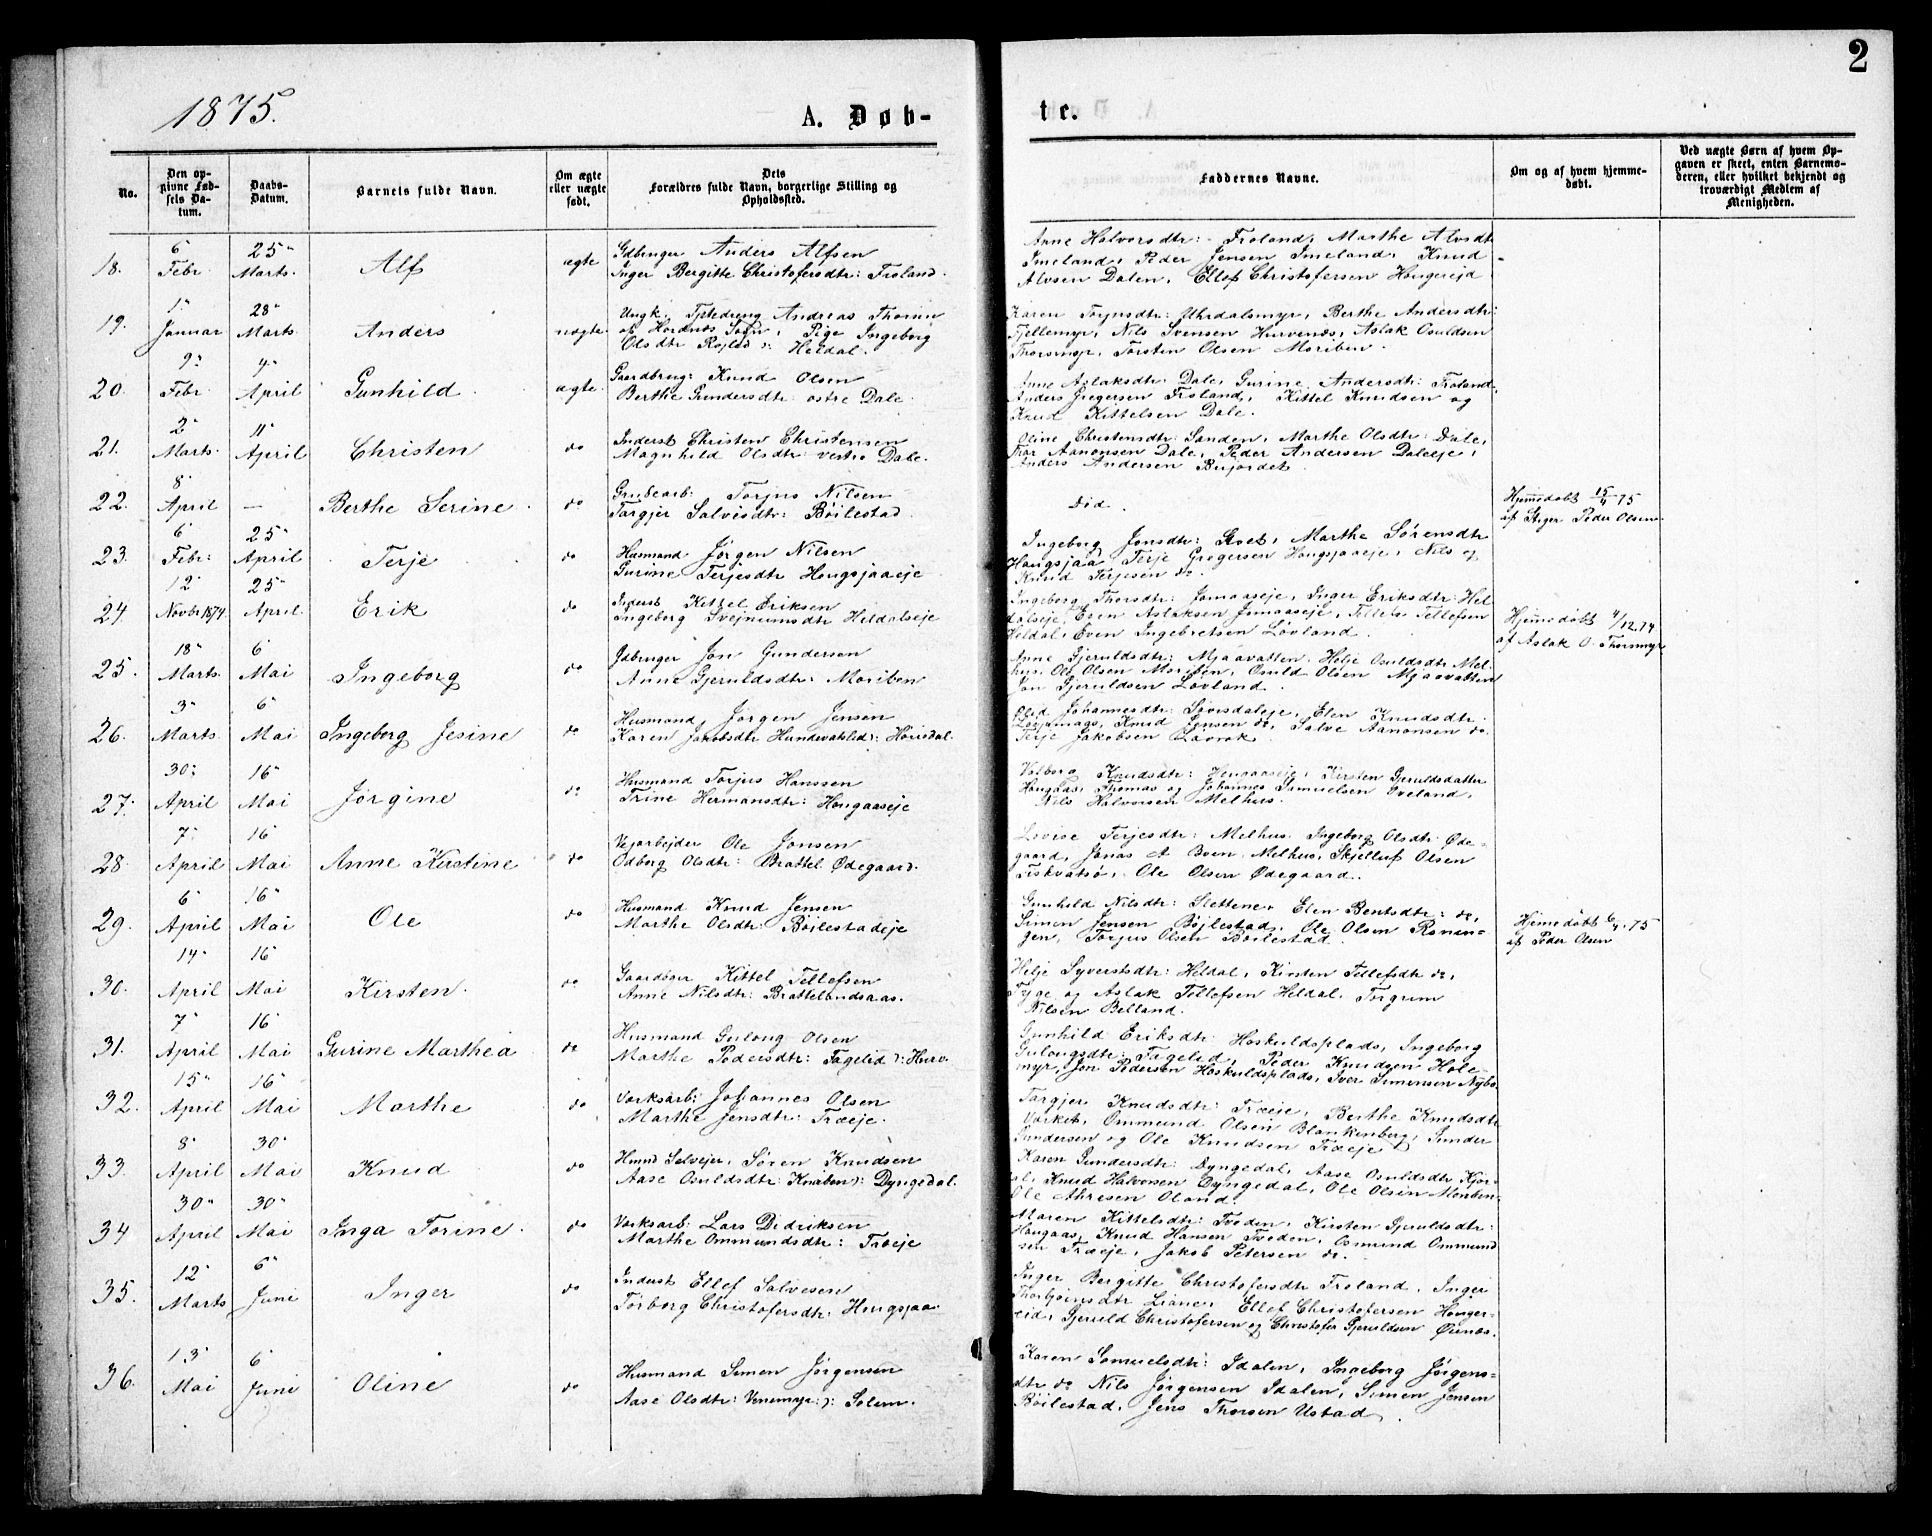 2
1875.
A. Døb-
te.
No.
Den op-
givne Fød-
sels Da-
tum.
Daabs-
Datum.
Barnets fulde Navn.
Om ægte
eller uægte
født.
Dets
Forældres fulde Navn, borgerlige Stilling og
Opholdssted.
Faddernes Navne.
Om og af hvem hjemme-
døbt.
Ved uægte Børn af hvem Op-
gaven er skeet, enten Barnemo-
deren, eller hvilket bekjendt og
troværdigt Medlem af
Menigheden.
18. 6 Febr. 25 Marts. Alf ægte
Gdbruger Anders Alfsen
Inger Bergitte Christofersdtr: Froland.
Anne Halvorsdtr: Froland, Marthe Alvsdtr
Imeland, Peder Jensen Imeland, Knud
Alvsen Dalen, Ellef Christofersen Hougereid
19. 1 Januar 28 Marts Anders uægte
Ungk. Andreas
Sogn, Pige Ingeborg
Olsdtr Heldal.
Karen Berthe Andersdtr:
Tellemyr, Nils Svensen Hurvenæs, Aslak Osuldsen
Thorsmyr, Torsten Olsen Moriben.
20. 9 Febr 4 April Gunhild ægte
Gaardbrug: Knud Olsen
Berthe Gundersdtr: østre Dale.
Anne Aslaksdtr: Dale, Gurine Andersdtr: Froland
Anders Gregersen Froland, Kittel Knudsen og
Knud Kittelsen Dale.
21. 2 Marts. 11 April Christen do
Inderst Christen Christensen
Magnhild Olsdtr: vestre Dale.
Oline Christensdtr: Sanden, Marthe Olsdtr: Dale,
Aanonsen Dale, Peder Andersen Daleeje,
Anders Andersen
22. 8 April — Berthe Serine do
Grubearb: Torjus Nilsen
Torgjer Salvesdtr: Böilestad
død.
Hjemmedøbt 15/4 75
af Peder Olsen
23. 6 Febr: 25 April Terje do
Husmand Jørgen Nilsen
Gurine Terjesdtr Hougsjaaeje
Ingeborg Jonsdtr: Marthe Sørensdtr
Hougsjaa, Terje Gregersen Hougsjaaeje, Nils og
Knud Terjesen do
24. 12 Novbr 1874. 25 April Erik do
Inderst Kittel Eriksen
Ingeborg Svejnumsdtr Heldalseje
Ingeborg Thorsdtr: Jomaaseje, Inger Eriksdtr: Hel-
dalseje, Even Aslaksen Jomaaseje, Tellef Tellefsen
Heldal, Even Ingebretsen Løvland.
Hjemmedøbt 4/12 74
af Aslak O. Thorsmyr
25. 18 Marts. 6 Mai Ingeborg do
Gdbruger Jon Gundersen
Anne Gjeruldsdtr: Moriben
Anne Gjeruldsdtr: Mjaavatten. Helje Osuldsdtr Mel-
hus, Ole Olsen Moriben, Osuld Olsen Mjaavatten
Jon Gjeruldsen Løvland.
26. 3 Marts 6 Mai Ingeborg Jesine do
Husmand Jørgen Jensen
Karen Jakobsdtr
Johannesdtr: Elen Knudsdtr.
Knud Jensen do, Salve Aanonsen do.
Terje Jakobsen
27. 30 April 16 Mai Jørgine do
Husmand Torjus Hanssen
Trine Hermansdtr: Hougaaseje
Valborg Knudsdtr: Hougaaseje, Kirsten Gjeruldsdatter
Hougaas, Thomas og Johannes Samuelsen Oveland,
Nils Halvorsen Melhus.
28. 7 April 16 Mai Anne Kirstine do
Vejarbejder Ole Jonsen
Odborg Olsdtr: Brattel. Ødegaard.
Lovise Terjesdtr: Melhus. Ingeborg Olsdtr Øde-
gaard, Jonas A. Boen, Melhus, Skjelluf Olsen
Fiskvatsø, Ole Olsen Ødegaard.
29. 6 April 16 Mai Ole do
Husmand Knud Jensen
Marthe Olsdtr: Böilestadeje
Gunhild Nilsdtr: Slettene, Elen Bentsdtr: do,
Simen Jensen Böjlestad, Ole Olsen Ronin-
gen, Torjus Olsen Böilestad.
Hjemmedøbt 6/4 75
af Peder Olsen
30. 14 April 16 Mai Kirsten. do
Gaardbruger Kittel Tellefsen
Anne Nilsdtr: Brattelandsaas.
Helje Syvertsdtr: Heldal, Kirsten Tellefsdtr do,
Tyge og Aslak Tellefsen Heldal, Torgrim
Nilsen Belland.
31. 7 April 16 Mai Gurine Marthea do
Husmand Guloug Olsen
Marthe Pedersdtr: Fagelid
Gunhild Eriksdtr: Hoskuldsplads, Ingeborg
Gulougsdtr: Fagelid, Peder Knudsen Hole-
myr, Jon Pedersen Hoskuldsplads, Iver Simensen Nybo
32. 15 April 16 Mai Marthe do
Værksarb: Johannes Olsen
Marthe Jensdtr: Træeje.
Torgjer Knudsdtr: Træeje, Berthe Knudsdtr
Værket, Ommund Olsen Blankenberg, Gunder
Gundersen og Ole Knudsen Træeje
33. 8 April 30 Mai Knud do
Hmd Selvejer, Søren Knudsen
Aase Osuldsdtr: Dyngedal.
Karen Gundersdtr: Dyngedal, Aase Osuldsdtr
Knud Halvorsen Dyngedal, Ole Olsen Moriben
Ole
34 30 April 30 Mai Inga Torine do
Værksarb: Lars Didriksen
Marthe Ommundsdtr: Træeje
Maren Kittelsdtr: Tveden, Kirsten Gjeruldsdtr:
Hougaas, Knud Hansen Tveden, Osmund Ommund-
sen Træeje, Jakob Petersen do.
35. 12 Marts 6 Juni Inger do
Inderst Ellef Salvesen
Torborg Christofersdtr: Hougsjaa
Inger Bergitte Christofersdtr Froland, Inger
Thorbjørnsdtr Liane, Ellef Christofersen Houger-
eid, Gjeruld Christofersen og Christofer Gjeruldsen
36. 13 Mai 6 Juni Oline do
Husmand Simen Jørgensen
Aase Olsdtr: Venemyr): Solem.
Karen Samuelsdtr: Idalen, Ingeborg Jørgens-
dtr do Nils Jørgensen Idalen, Simen Jensen
Böilestad, Jens Thorsen Ustad.